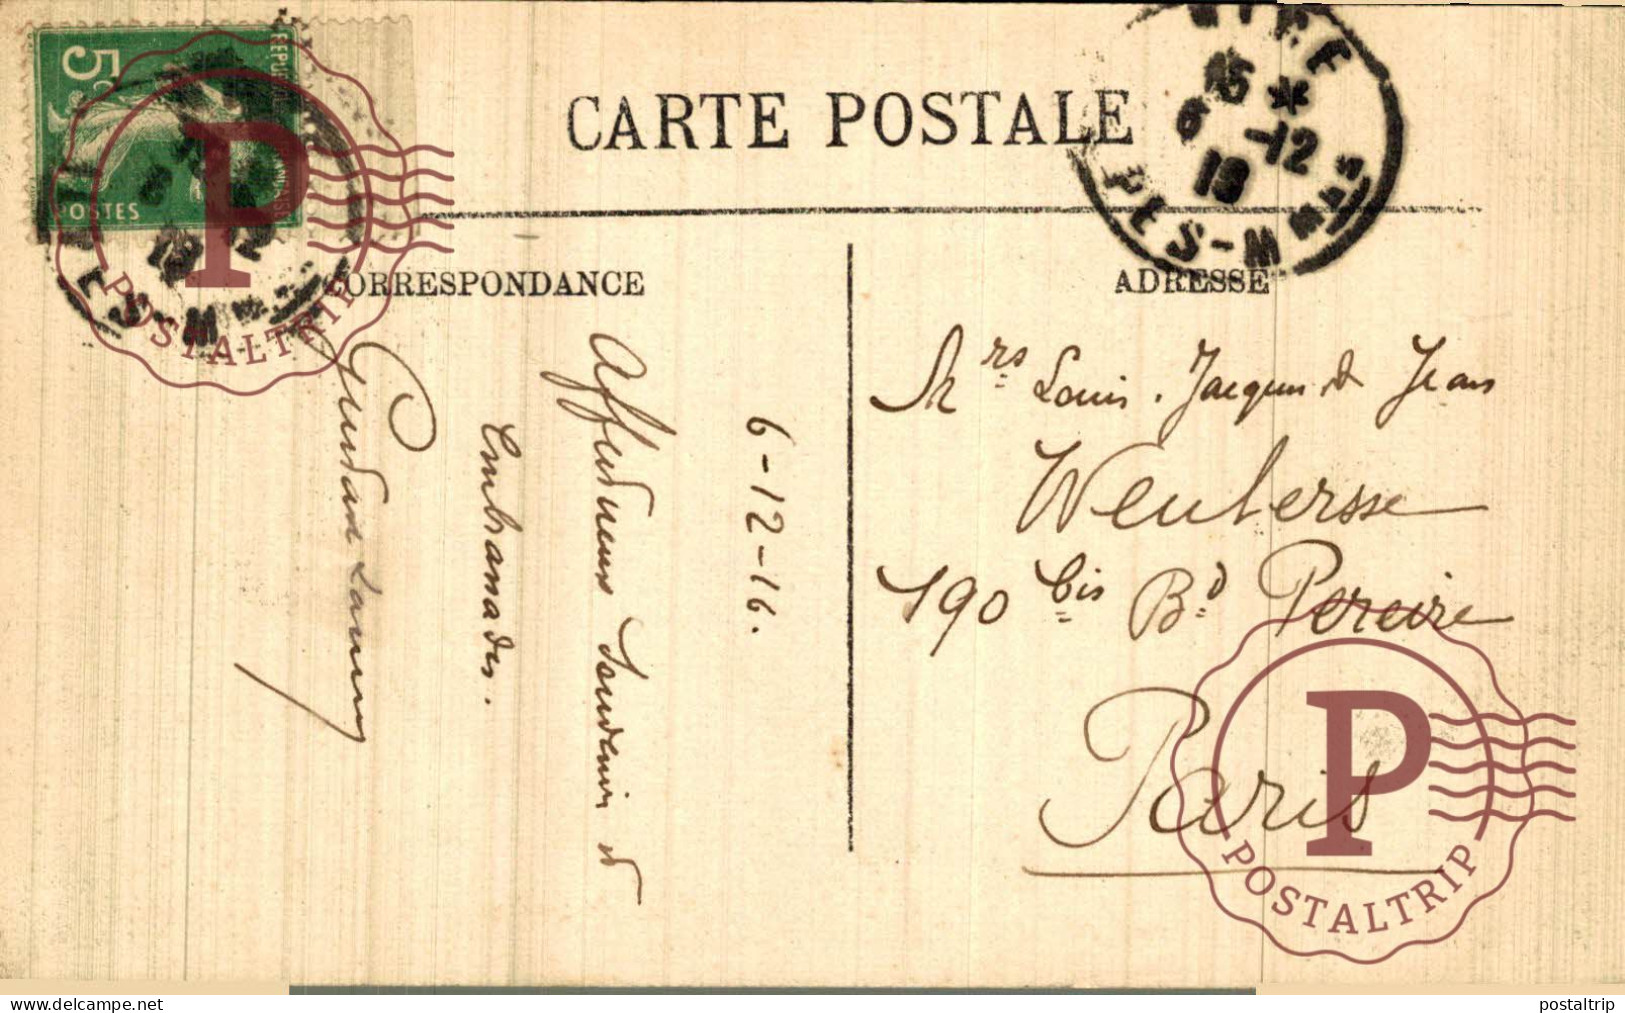 5c
POSTES
CARTE POSTALE
15 *
6 -12
PES-M MAR
CORRESPONDANCE
ADRESSE
6-12-16.
Affectueux Souvenir et
Embrassades.
Mrs Louis. Jacques et Jean
Weulersse
190 bis Bd Pereire
Paris
P
POSTALTRIP
P
POSTALTRIP
delcampe.net
postaltrip